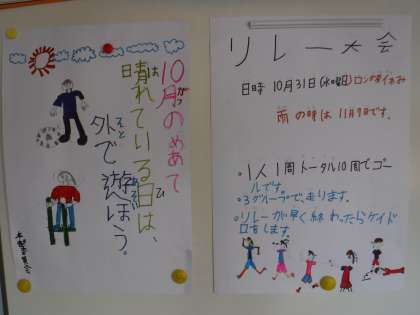 10月のめあて
晴れている日は、
外で遊ぼう。
リレー大会
日時 10月31日(水曜日)ロング昼休み
雨の時は11月7日です。
・1人1周トータル10周でゴー
ルです。
・3グループで、走ります。
・リレーが早く終わったらケイドロをします。